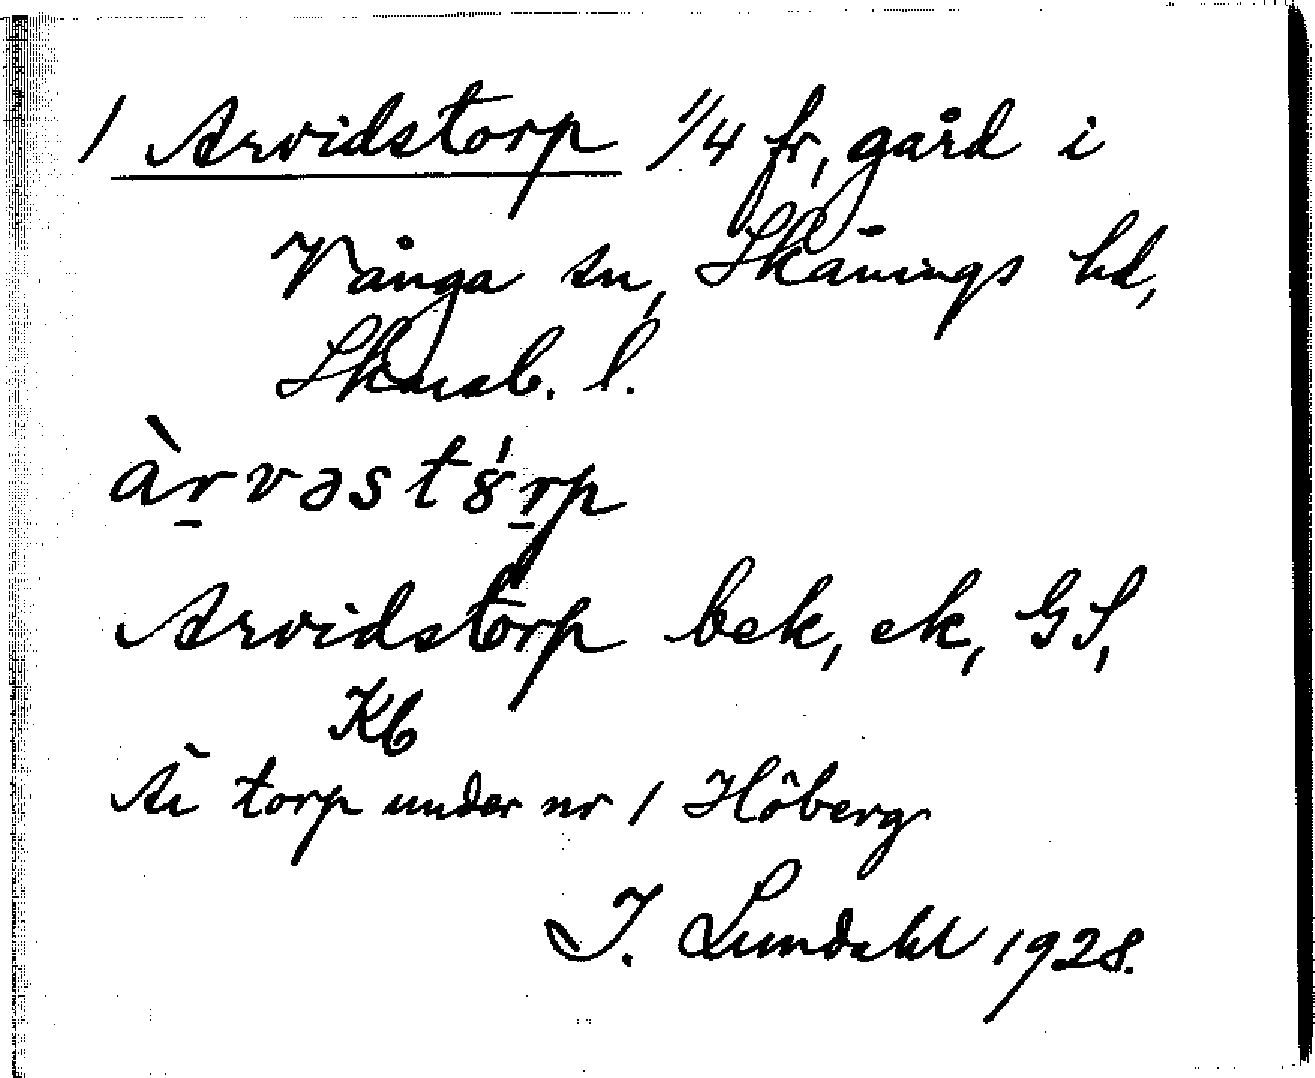 1 Arvidstorp 1/4 fr, gård i
Vånga sn, Skånings hd,
Skarab. l.
àrvəstȣ́rp
Arvidstorp bek, ek, GS,
Kb
Är torp under nr 1 Höberg
I. Lundahl 1928.